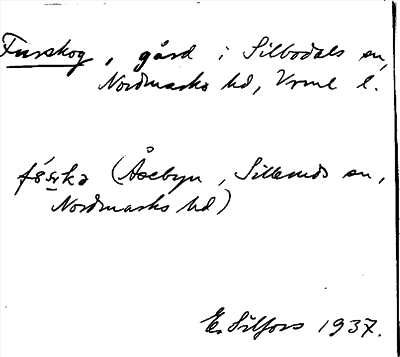 Furskog, gård i Silbodals sn,
Nordmarks hd, Vrml l.
fö́ṣkə (Åsebyn, Silleruds sn,
Nordmarks hd)
E. Silfors 1937.